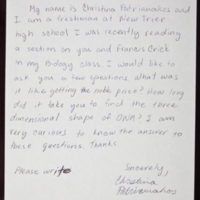 My name is Christina Patrianakos and
I am a freshman at New Trier
high school I was recently reading
a section on you and Francis Crick
in my Biology class. I would like to
ask you a few questions. What was
it like getting the noble prize? How long
did it take you to find the three
dimensional shape of DNA? I am
very curious to know the answer to
these questions. Thanks
Sincerely,
Please write
Christina
Patrianakos